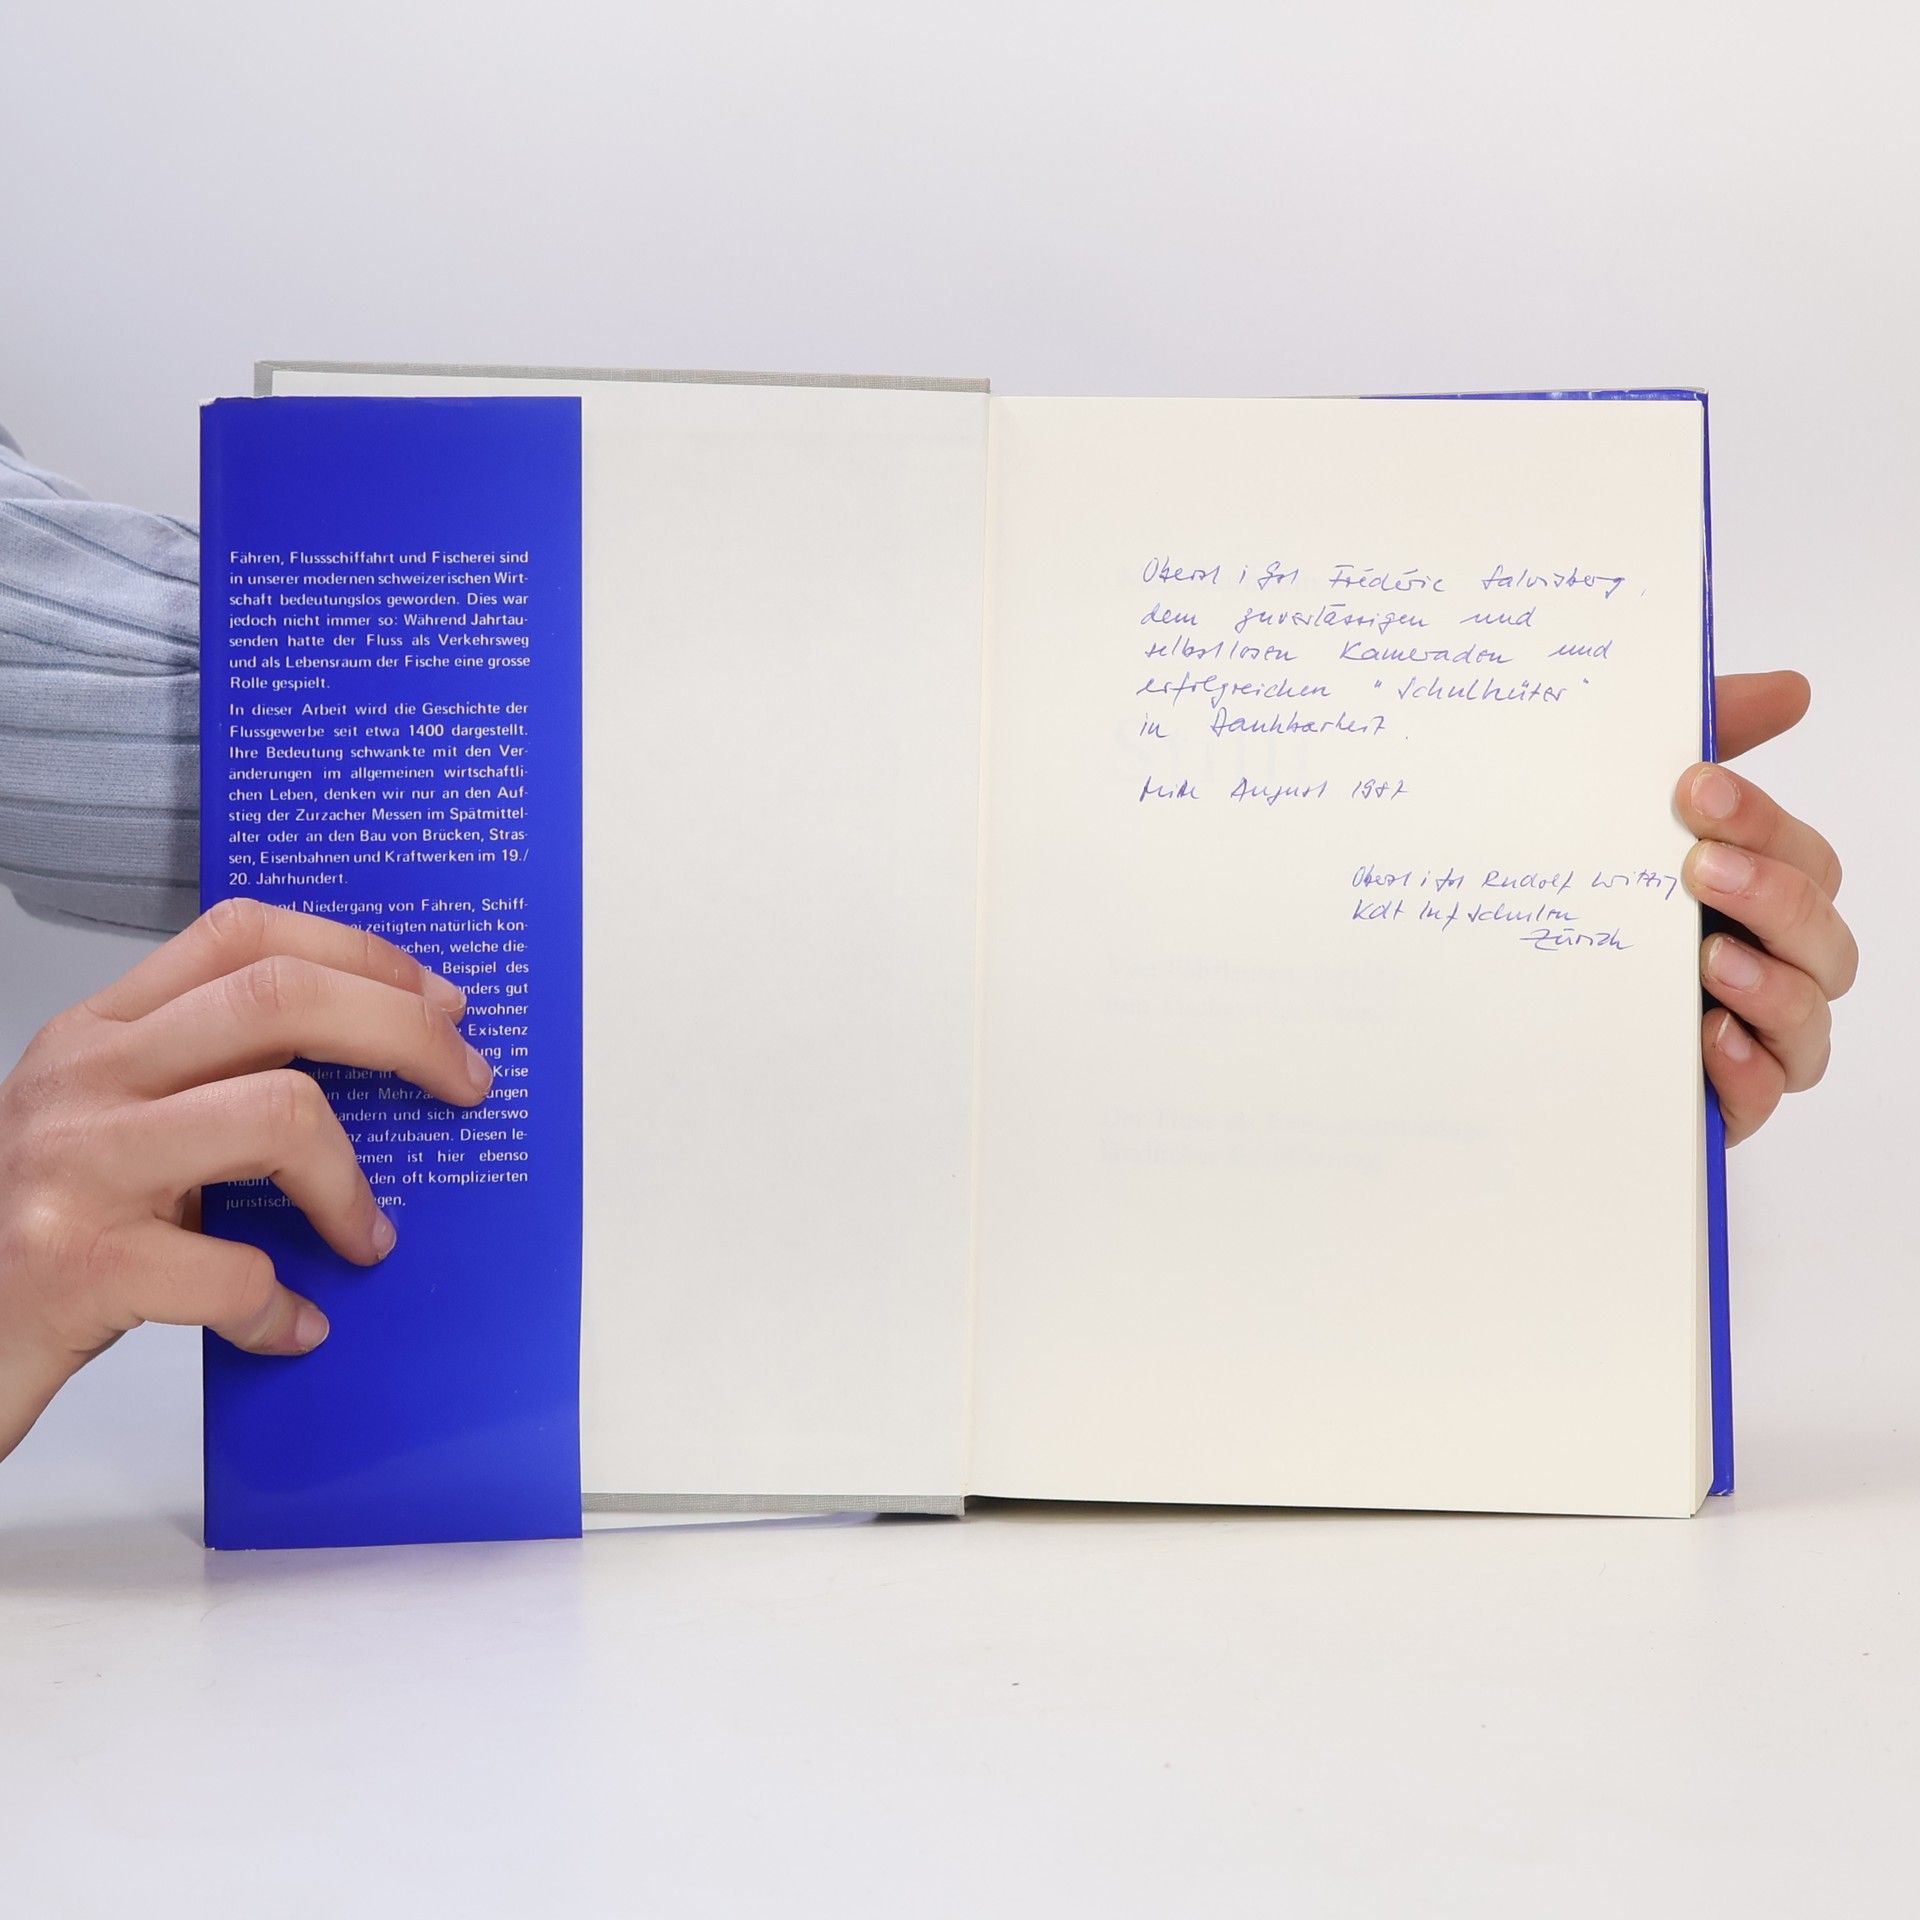 Fähren, Flussschiffahrt und Fischerei sind
in unserer modernen schweizerischen Wirt-
schaft bedeutungslos geworden. Dies war
jedoch nicht immer so: Während Jahrtau-
senden hatte der Fluss als Verkehrsweg
und als Lebensraum der Fische eine grosse
Rolle gespielt.
In dieser Arbeit wird die Geschichte der
Flussgewerbe seit etwa 1400 dargestellt.
Ihre Bedeutung schwankte mit den Ver-
änderungen im allgemeinen wirtschaftli-
chen Leben, denken wir nur an den Auf-
stieg der Zurzacher Messen im Spätmittel-
alter oder an den Bau von Brücken, Stras-
sen, Eisenbahnen und Kraftwerken im 19./
20. Jahrhundert.
Niedergang von Fähren, Schiff-
zeitigten natürlich kon-
welche die-
Beispiel des
gut
Existenz
im
aber in Krise
in der
und sich anderswo
aufzubauen. Diesen le-
ist hier ebenso
Raum den oft komplizierten
Oberst i Gst Frédéric Salvisberg,
dem zuverlässigen und
selbstlosen Kameraden und
erfolgreichen "Schulhüter"
in Dankbarkeit.
Mitte August 1987
Oberst i Gst Rudolf Witzig
Kdt Inf Schulen
Zürich